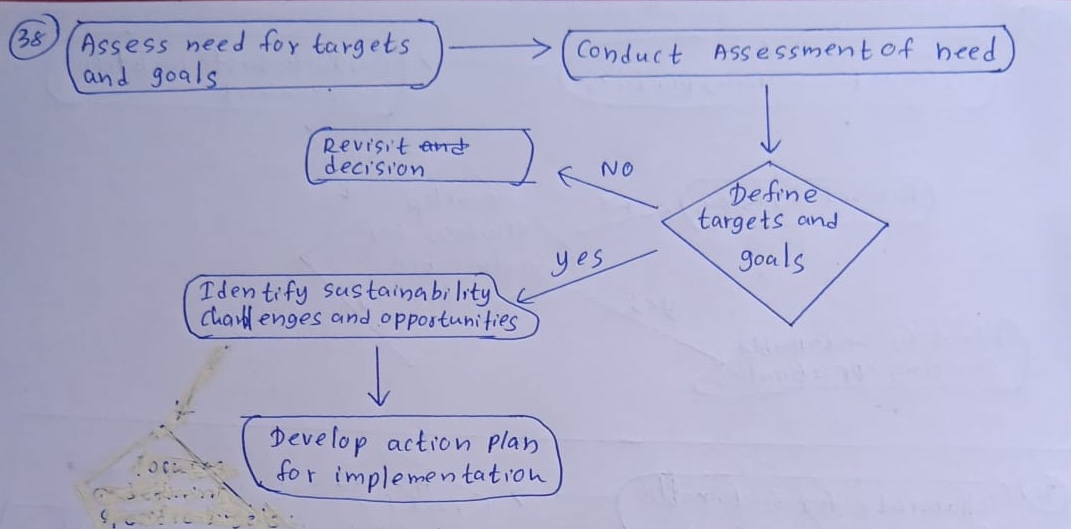 38
Assess need for targets
and goals
Conduct Assessment of need
Revisit
decision
NO
Define
targets and
goals
yes
Identify sustainability
challenges and opportunities
Develop action plan
for implementation